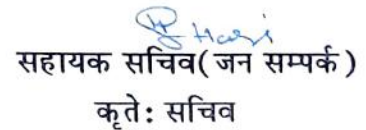 सहायक सचिव(जन सम्पर्क)
कृते: सचिव